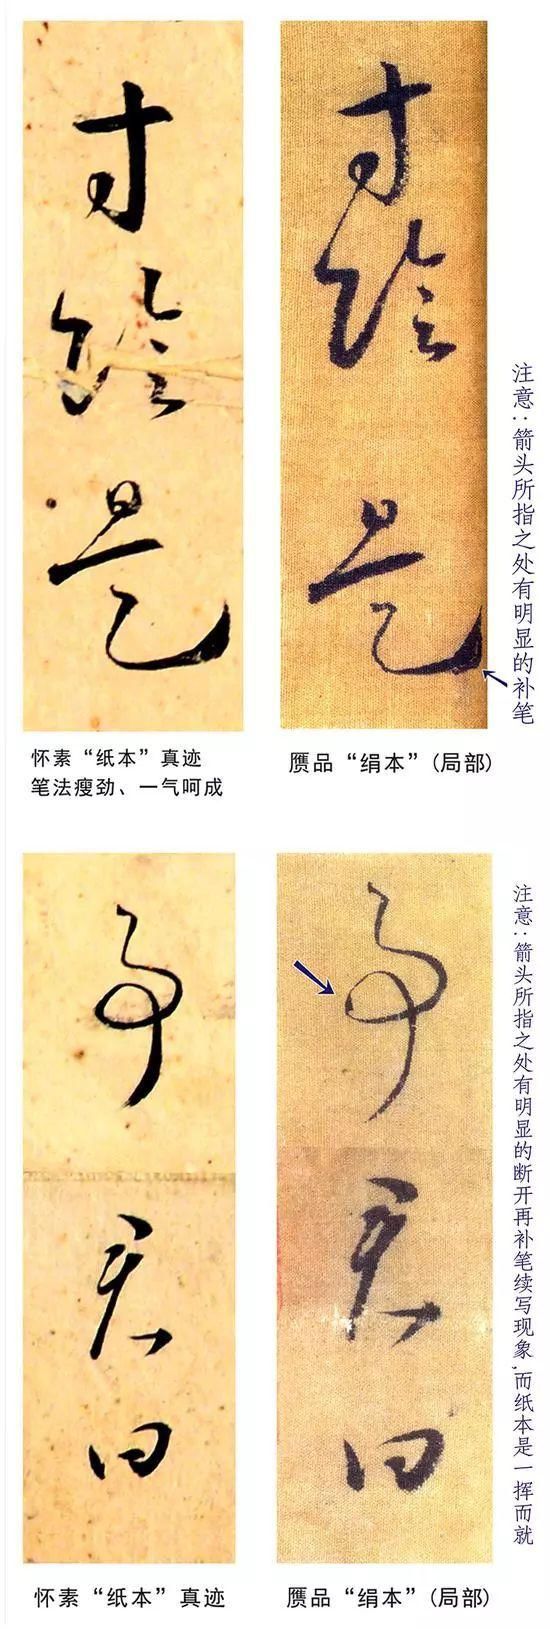 寸陰是
寸陰是
注意:箭头所指之处有明显的补笔
怀素“纸本”真迹
笔法瘦劲、一气呵成
赝品“绢本”(局部)
事君曰
事君曰
注意:箭头所指之处有明显的断开再补笔续写现象,而纸本是一挥而就
怀素“纸本”真迹
赝品“绢本”(局部)